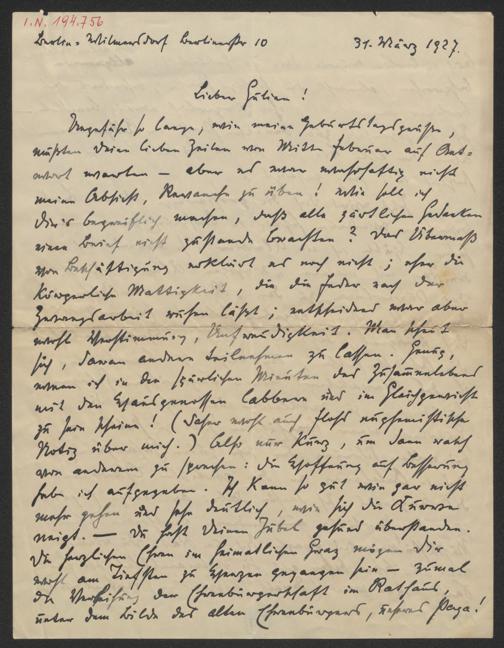 I.N. 194.756
Berlin-Wilmersdorf Berlinerstr 10 31. März 1927.
Lieber Julian!
Ungefähr so lange, wie meine Geburtstagsgrüße,
mußten Deine lieben Zeilen von Mitte Februar auf Ant-
wort warten — aber es war wahrhaftig nicht
meine Absicht, Revanche zu üben! Wie soll ich
Dir's begreiflich machen, daß alle zärtlichen Gedanken
einen Brief nicht zustande brachten? Das Übermaß
von Beschäftigung erklärt es noch nicht; eher die
körperliche Mattigkeit, die die Feder nach der
Zwangsarbeit ruhen läßt; entscheidend war aber
wohl Verstimmung, Unfreudigkeit. Man scheut
sich, davon andere teilnehmen zu lassen. Genug,
wenn ich in den spärlichen Minuten des Zusammenlebens
mit den Hausgenossen und im Gleichgewicht
zu sein scheine! (Daher wohl auch euphemistische
Notiz über mich.) Also nur kurz, um dann rasch
von anderem zu sprechen: die Hoffnung auf Besserung
habe ich aufgegeben. Ich kann so gut wie gar nicht
mehr gehen und sehe deutlich, wie sich die Kurve
neigt. — Du hast Deinen Jubel gesund überstanden.
Die herzlichen Ehren im heimatlichen Graz mögen Dir
wohl am tiefsten zu Herzen gegangen sein — zumal
die Verleihung der Ehrenbürgerschaft im Rathaus,
unter dem Bilde des alten Ehrenbürgers, unseres Papa!